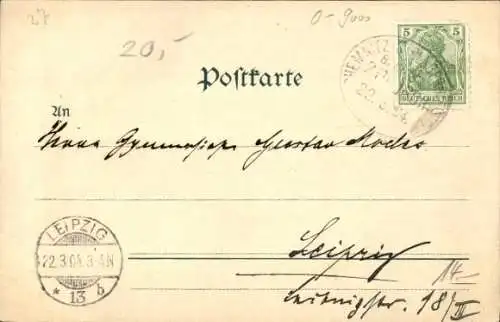 27
20,-
0-9000
Postkarte
5 5
DEUTSCHES REICH
CHEMNITZ
22.3.04
An
Herrn Gustav
LEIPZIG
22.3.04.3-4N
* 13 b
Leipzig
14-
18/III